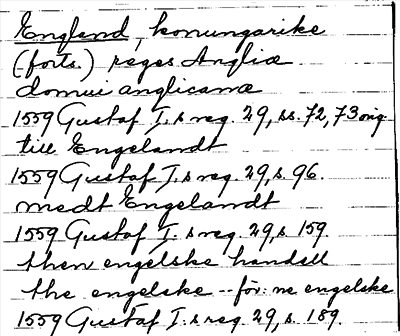 England, konungarike
(forts.) reges Angliæ
domui anglicanæ
1559 Gustaf I.s reg. 29, ss. 72, 73 orig.
till Engelandt
1559 Gustaf I.s reg. 29, s. 96.
medt Engelandt
1559 Gustaf I. s reg. 29, s. 159.
then engelske handell
the engelske -- för: ne engelske
1559 Gustaf I. s reg. 29, s. 189.